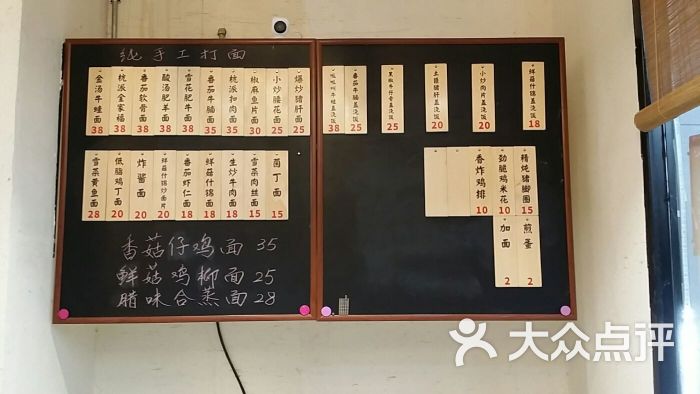 纯手工打面
金汤牛蛙面 38
杭派全家福 38
番茄软骨面 38
酸汤肥羊面 38
雪花肥牛面 38
番茄牛腩面 35
杭派扣肉面 35
椒麻鱼片面 30
小炒腰花面 25
爆炒猪肝面 25
雪菜黄鱼面 28
低脂鸡丁面 20
炸酱面 20
鲜菇什锦炒面片 20
番茄虾仁面 18
鲜菇什锦面 18
生炒牛肉面 18
雪菜肉丝面 15
菌丁面 15
香菇仔鸡面 35
鲜菇鸡柳面 25
腊味合蒸面 28
牛蛙盖浇饭 38
番茄牛腩盖浇饭 25
黑椒牛仔骨盖浇饭 25
土匪猪肝盖浇饭 20
小炒肉片盖浇饭 20
鲜菇什锦盖浇饭 18
香炸鸡排 10
劲脆鸡米花 10
精炖猪脚圈 15
加面 2
煎蛋 2
大众点评